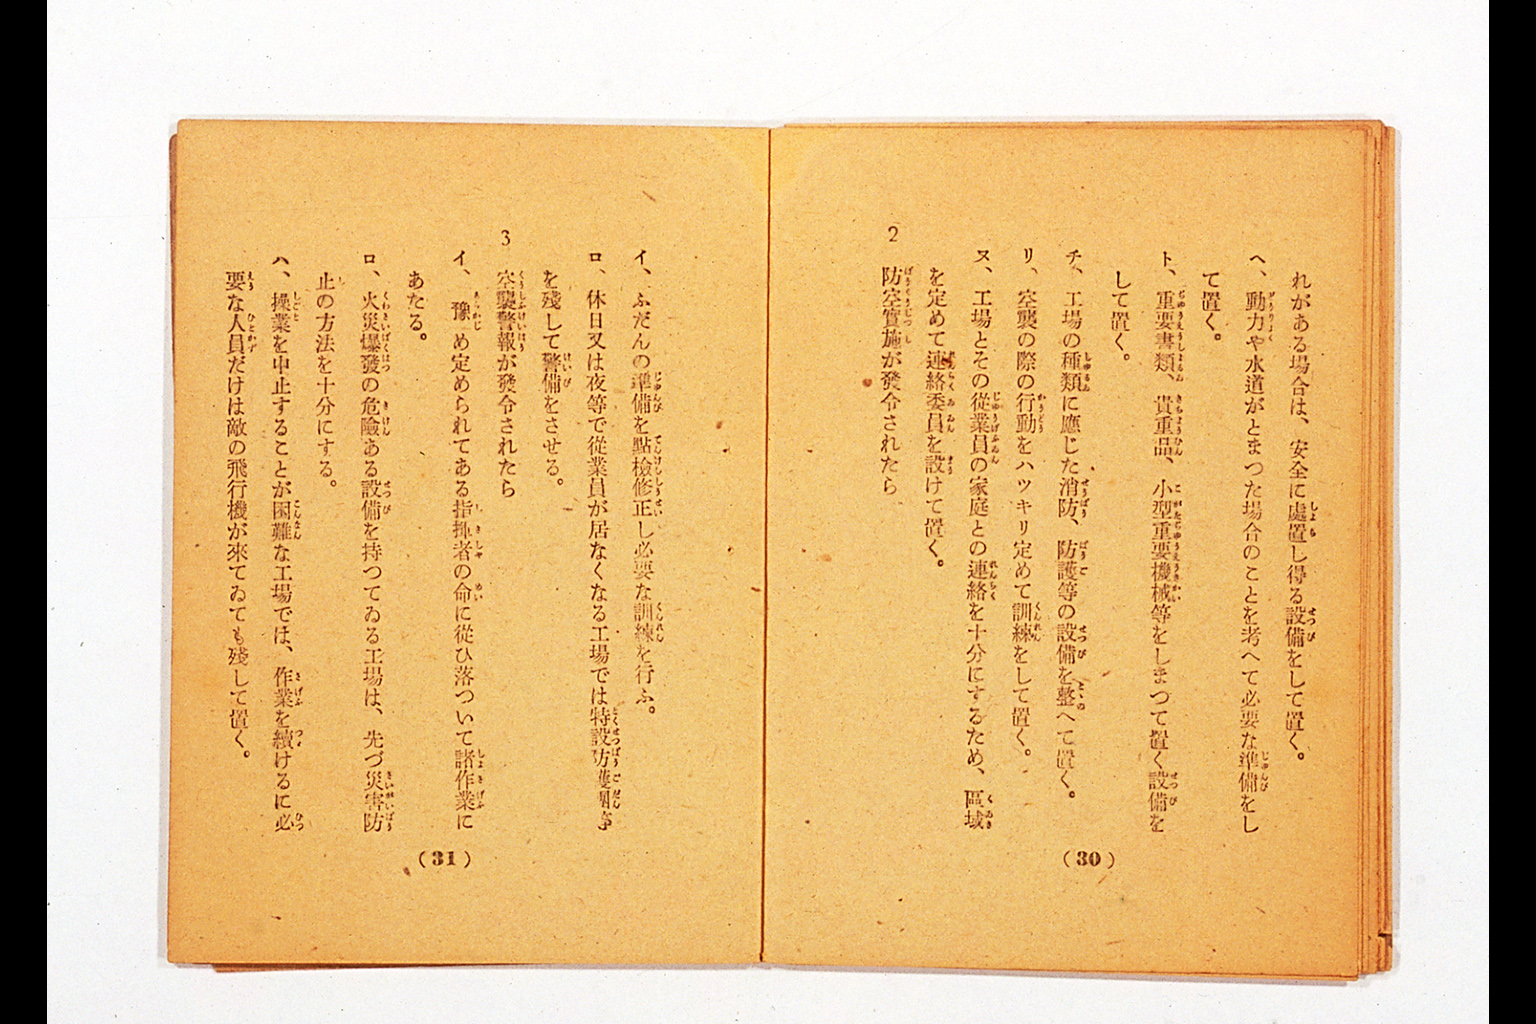 れがある場合は、安全に處置し得る設備をして置く。
ヘ、動力や水道がとまつた場合のことを考へて必要な準備をし
て置く。
ト、重要書類、貴重品、小型重要機械等をしまつて置く設備を
して置く。
チ、工場の種類に應じた消防、防護等の設備を整へて置く。
リ、空襲の際の行動をハツキリ定めて訓練をして置く。
ヌ、工場とその從業員の家庭との連絡を十分にするため、區域
を定めて連絡委員を設けて置く。
2 防空實施が發令されたら
(30)
イ、ふだんの準備を點檢修正し必要な訓練を行ふ。
ロ、休日又は夜等で從業員が居なくなる工場では特設防護團等
を殘して警備をさせる。
3 空襲警報が發令されたら
イ、豫め定められてある指揮者の命に從ひ落ついて諸作業に
あたる。
ロ、火災爆發の危險ある設備を持つてゐる工場は、先づ災害防
止の方法を十分にする。
ハ、操業を中止することが困難な工場では、作業を續けるに必
要な人員だけは敵の飛行機が來てゐても殘して置く。
(31)